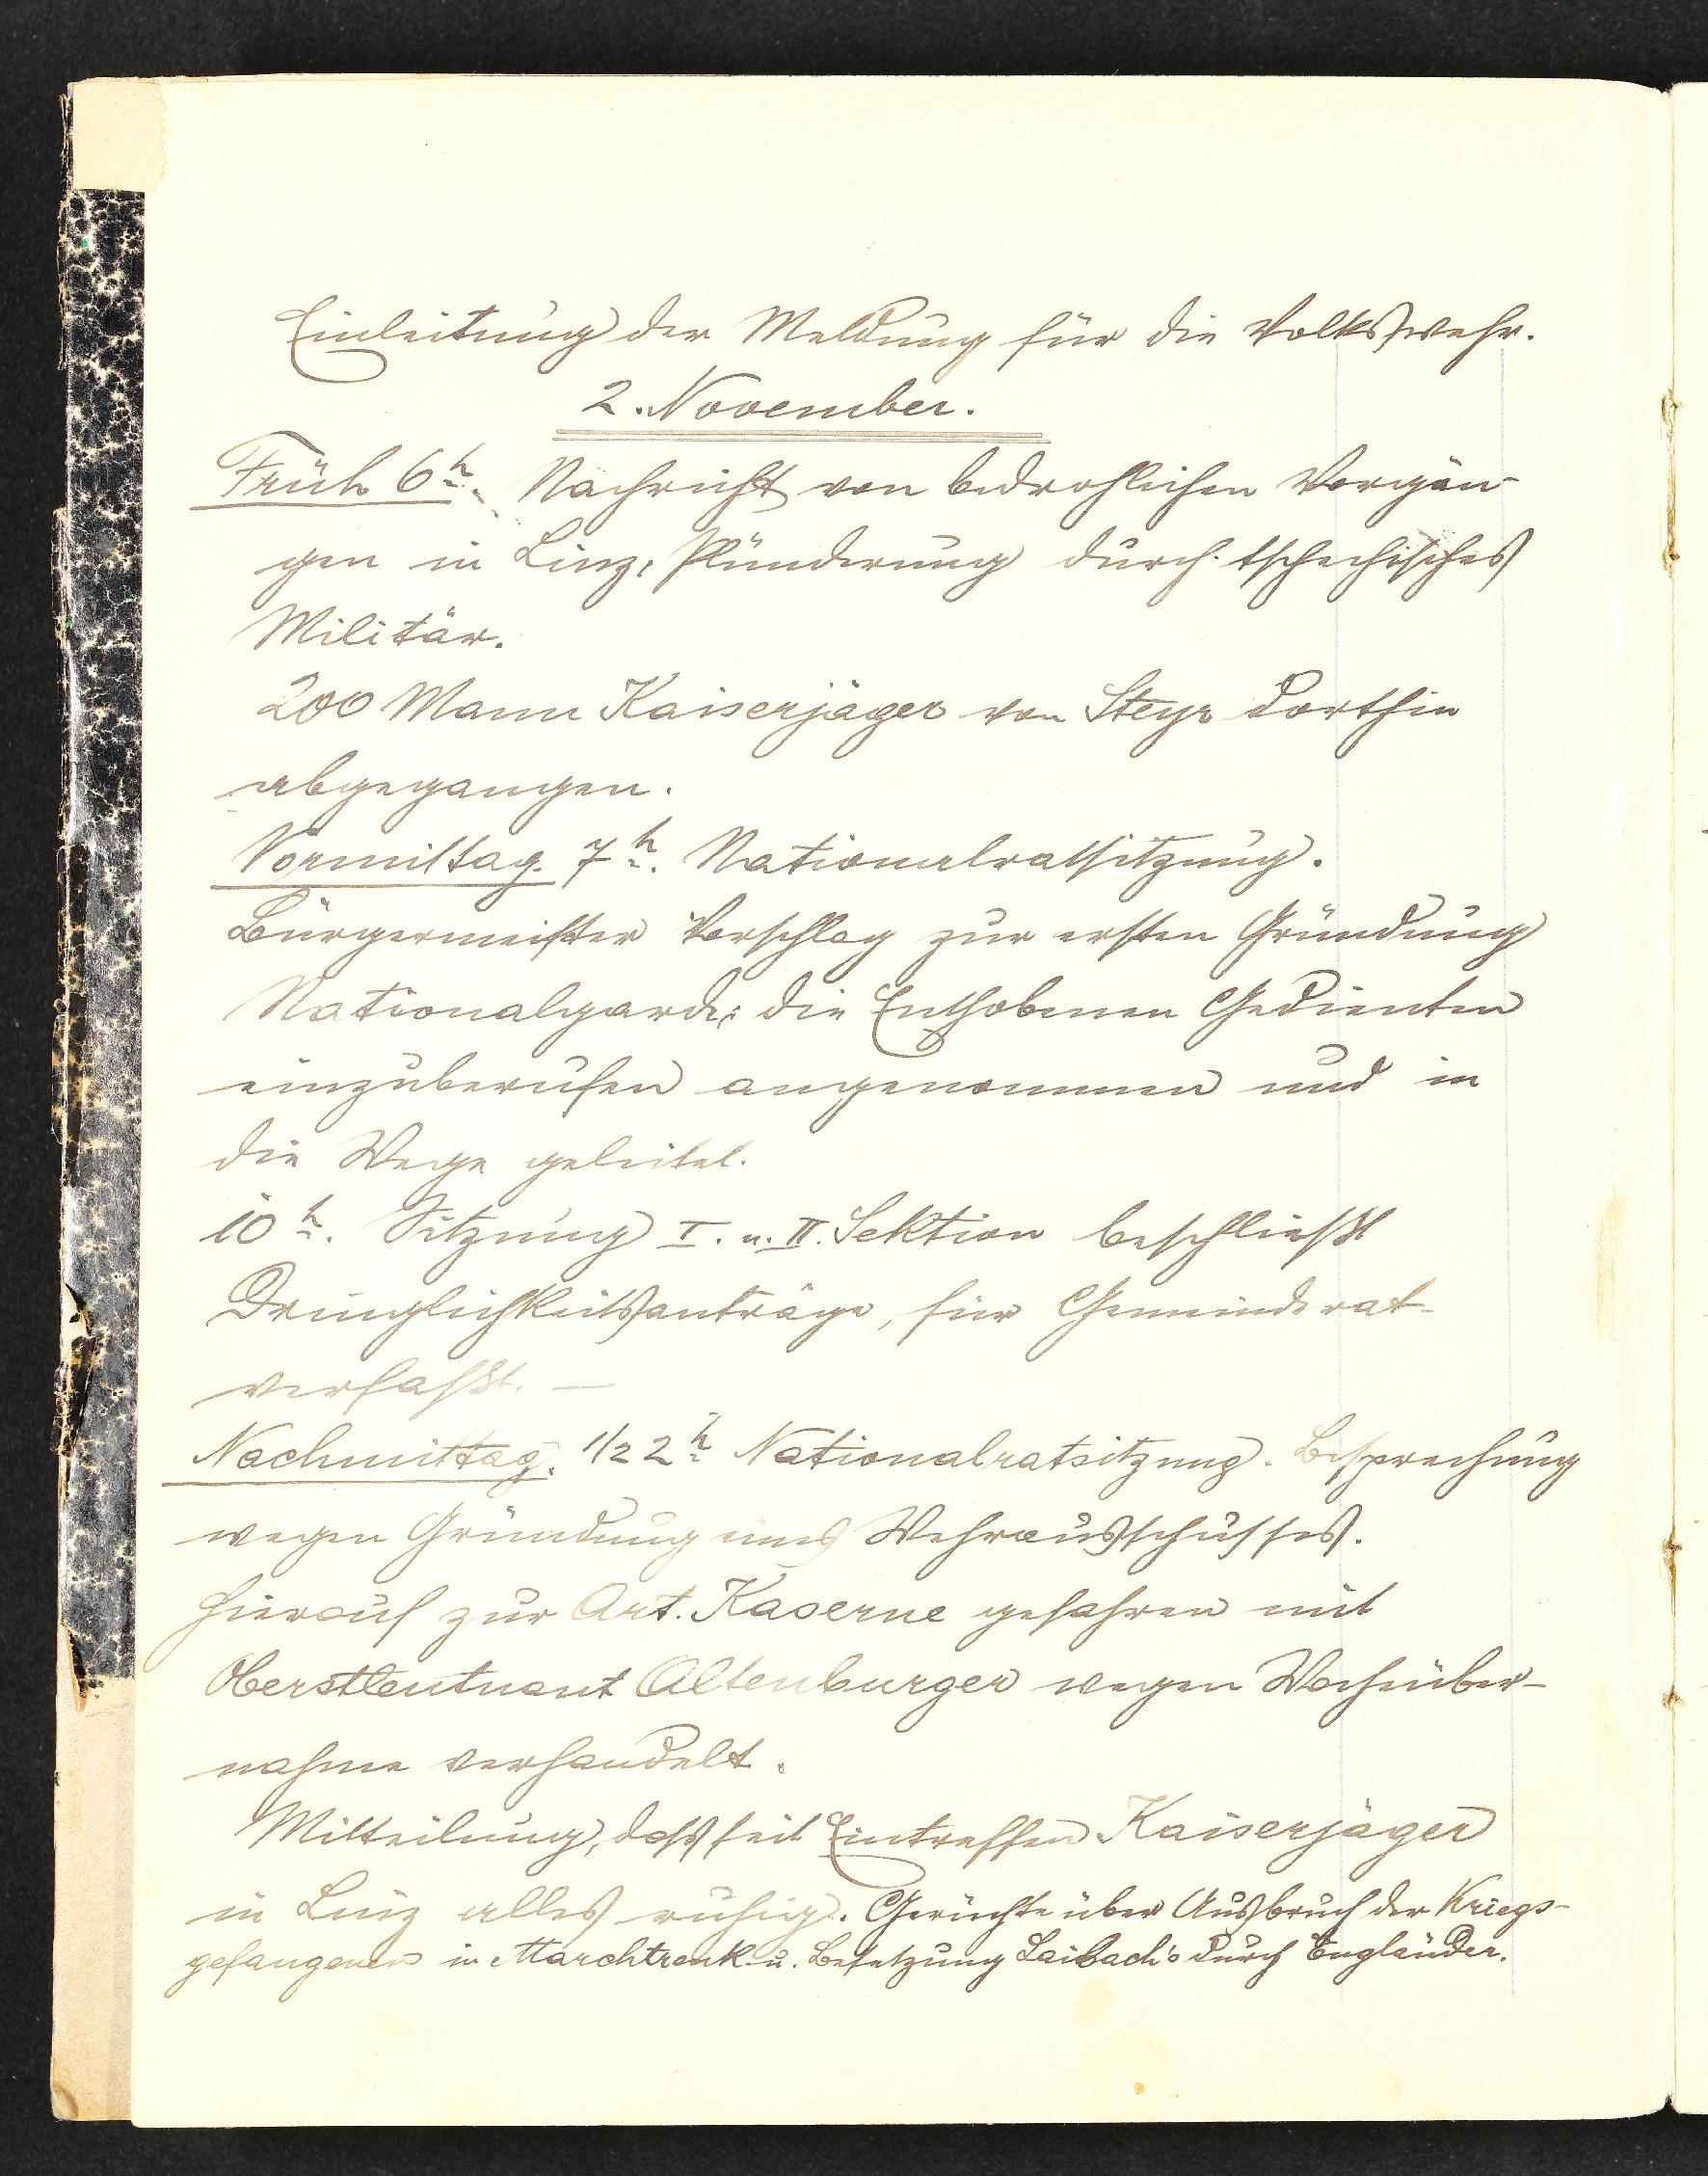 Einleitung der Meldung für die Volkswehr.
2. November.
Früh 6h. Nachricht von bedrohlichen Vorgän-
gen in Linz, Plünderung durch tschechisches
Militär.
200 Mann Kaiserjäger von Steyr dorthin
abgegangen.
Vormittag. 7h. Nationalratsitzung.
Bürgermeister Vorschlag zur ersten Gründung
Nationalgarde: die Enthobenen Gedienten
einzuberufen angenommen und in
die Wege geleitet.
10h. Sitzung I. u. II. Sektion beschließt
Dringlichkeitsanträge, für Gemeinderat
verfaßt. —
Nachmittag. 1/2 2h Nationalratsitzung. Besprechung
wegen Gründung eines Wehrausschusses.
Hierauf zur Art. Kaserne gefahren mit
Oberstleutnant Altenburger wegen Wacheüber-
nahme verhandelt.
Mitteilung, daß seit Eintreffen Kaiserjäger
in Linz alles ruhig. Gerüchte über Ausbruch der Kriegs-
gefangenen in Marchtrenk u. Besetzung Laibach's durch Engländer.